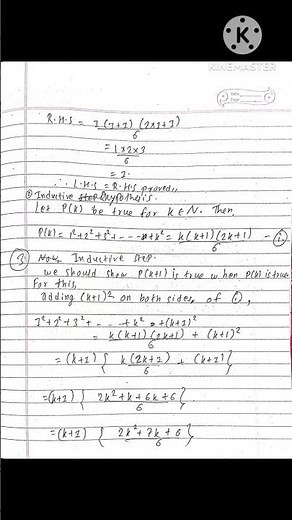 K
KINEMASTER
Date
Page
R.H.S = 1(1+1) (2×1+1)
6
= 1×2×3
6
= 1.
∴ L.H.S = R.H.S proved,,
② Inductive step Hypothesis
Let P(k) be true for k ∈ N. Then,
P(k) = 1²+2²+3²+ - - - +k² = k(k+1)(2k+1) - ①
6
③ Now, Inductive step.
we should show P(k+1) is true when P(k) is true
for this,
Adding (k+1)² on both sides of ①,
1²+2²+3²+ - - - +k²+(k+1)²
= k(k+1)(2k+1) + (k+1)²
6
= (k+1) { k(2k+1) + (k+1) }
6
= (k+1) { 2k²+k+6k+6 }
6
= (k+1) { 2k²+7k+6 }
6